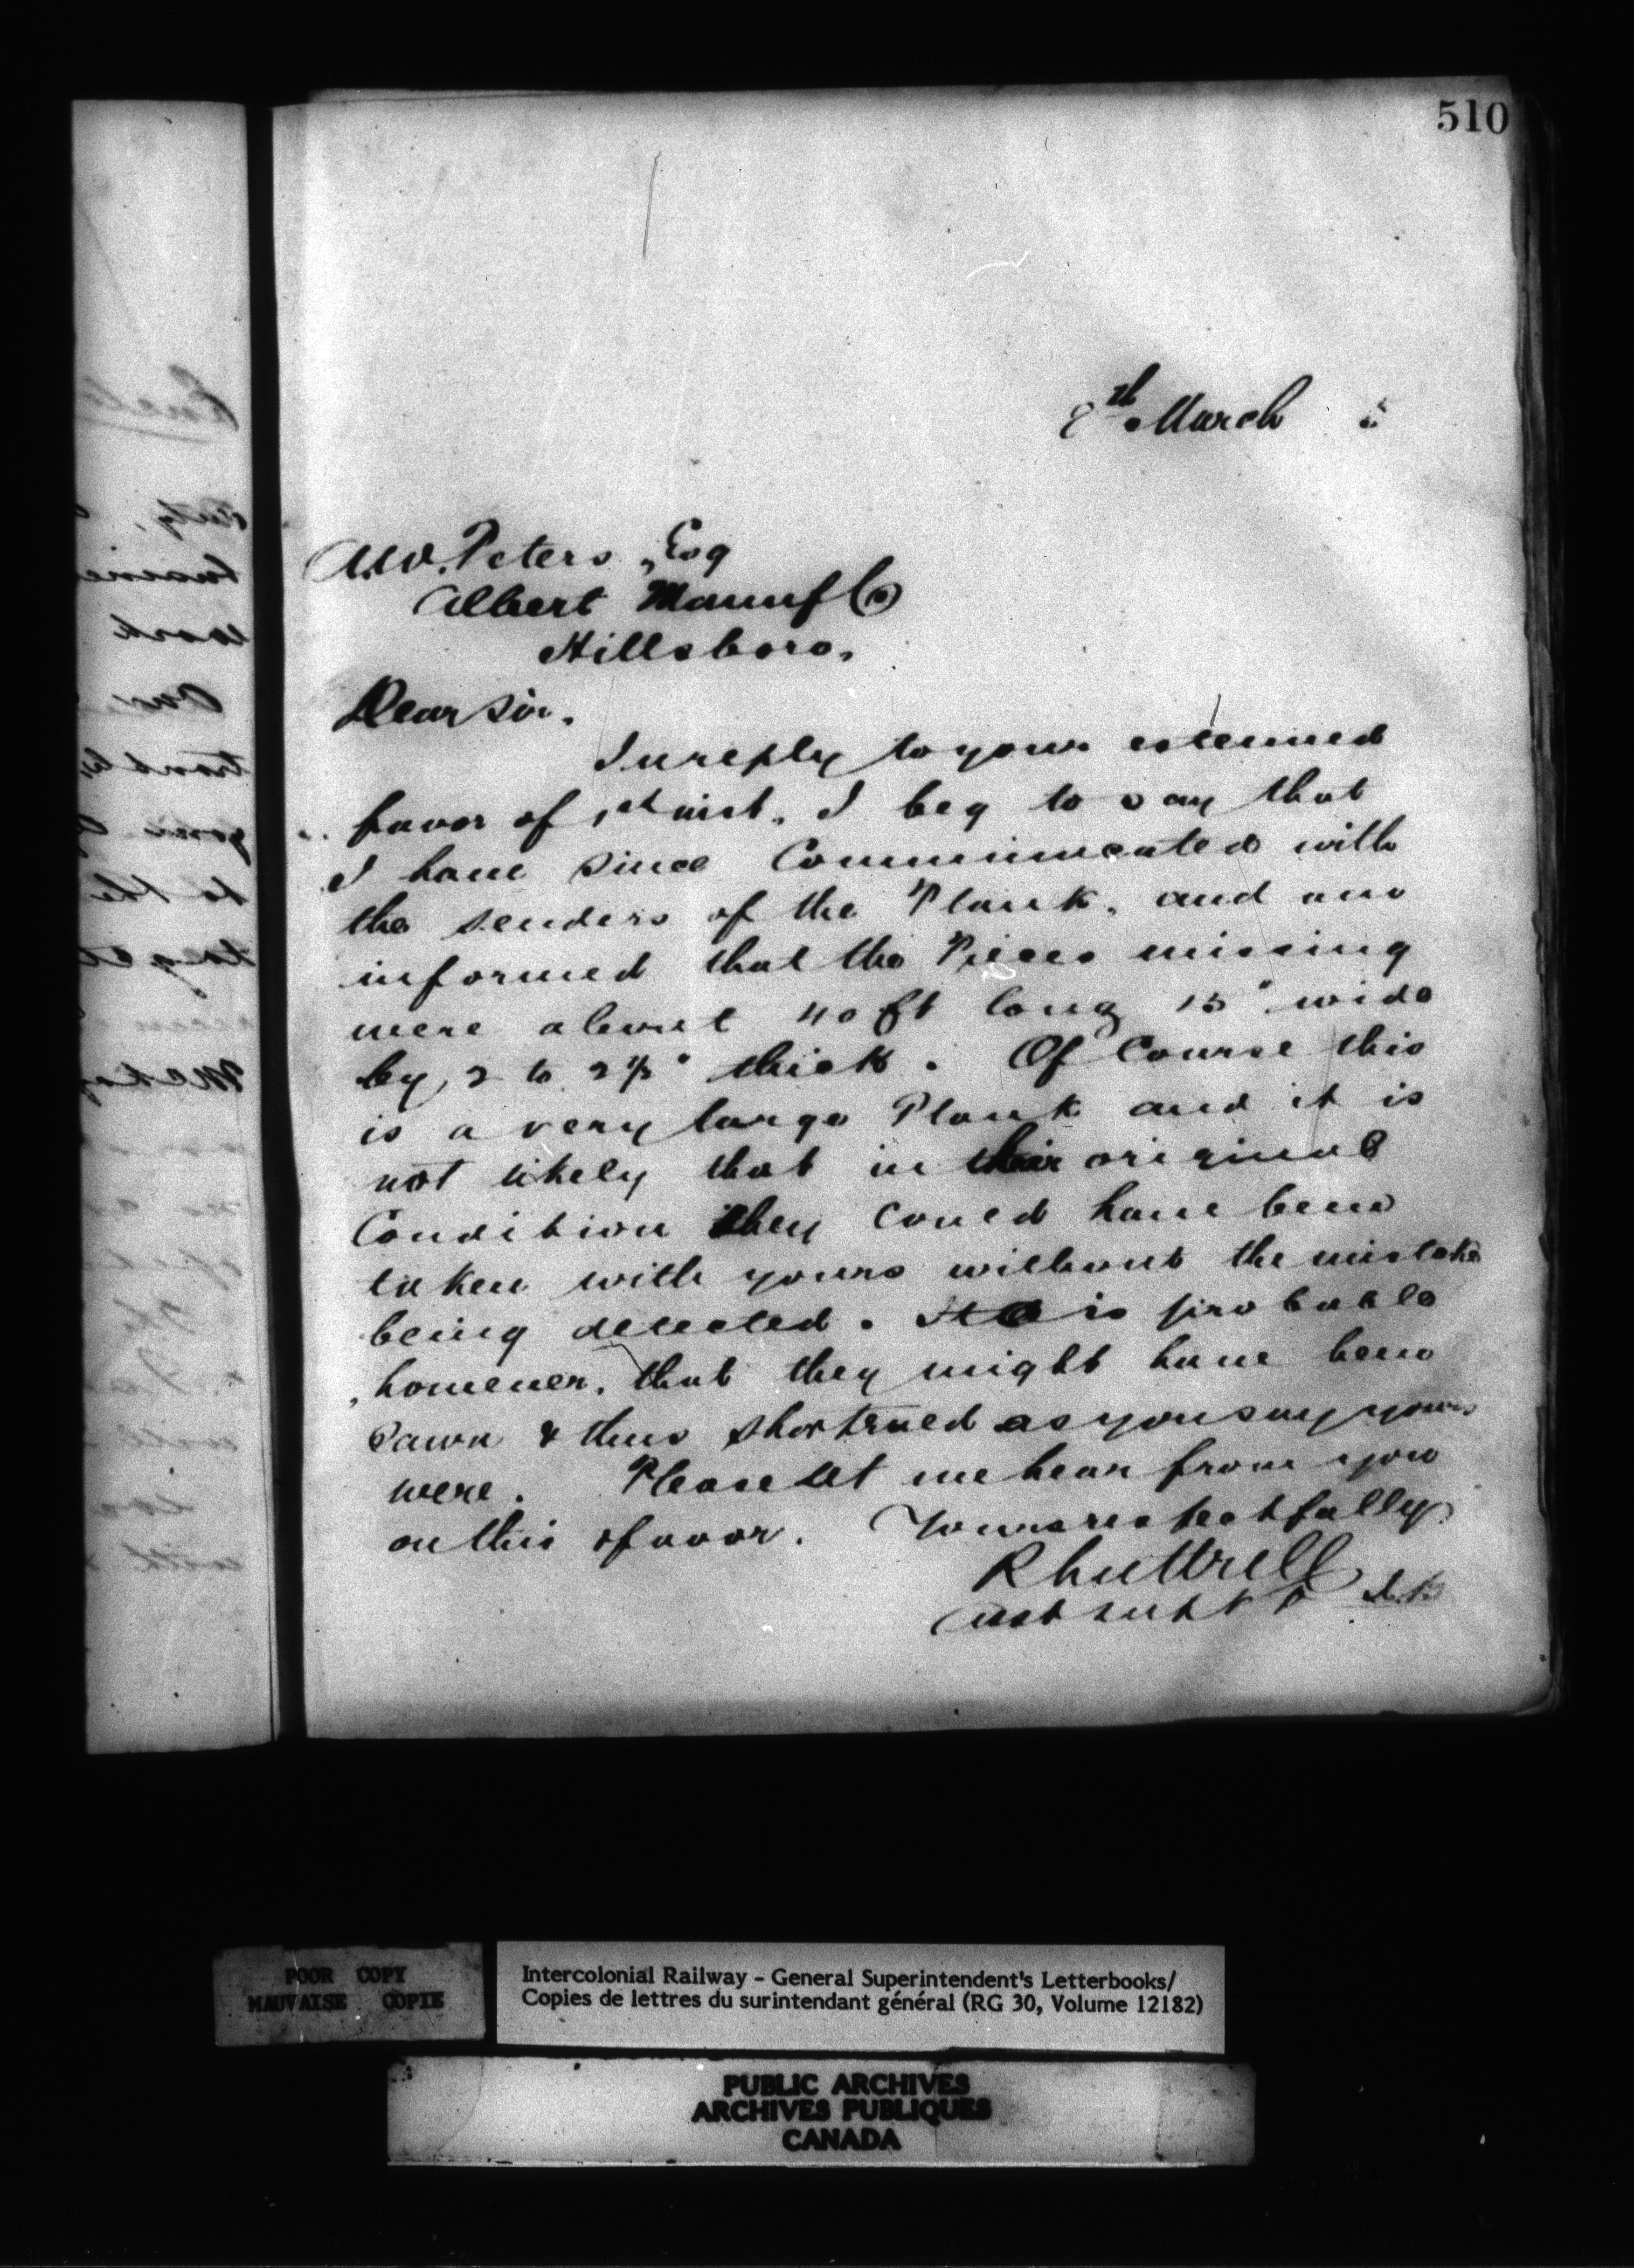 510
8th March 5
A.W. Peters, Esq
Albert Manuf Co
Hillsboro,
Dear Sir,
In reply to your esteemed
favor of 1st inst, I beg to say that
I have since Communicated with
the senders of the Plank, and am
informed that the Pieces missing
were about 40 ft long 15" wide
by 2 to 2½" thick. Of Course this
is a very large Plank and it is
not likely that in their original
Condition they Could have been
taken with yours without the mistake
being detected. It is probable
however, that they might have been
Sawn & thus shortened as you say yours
were. Please let me hear from you
on this & favor. Yours respectfully
R Luttrell
Asst Supt
POOR COPY
MAUVAISE COPIE
Intercolonial Railway - General Superintendent's Letterbooks/
Copies de lettres du surintendant général (RG 30, Volume 12182)
PUBLIC ARCHIVES
ARCHIVES PUBLIQUES
CANADA